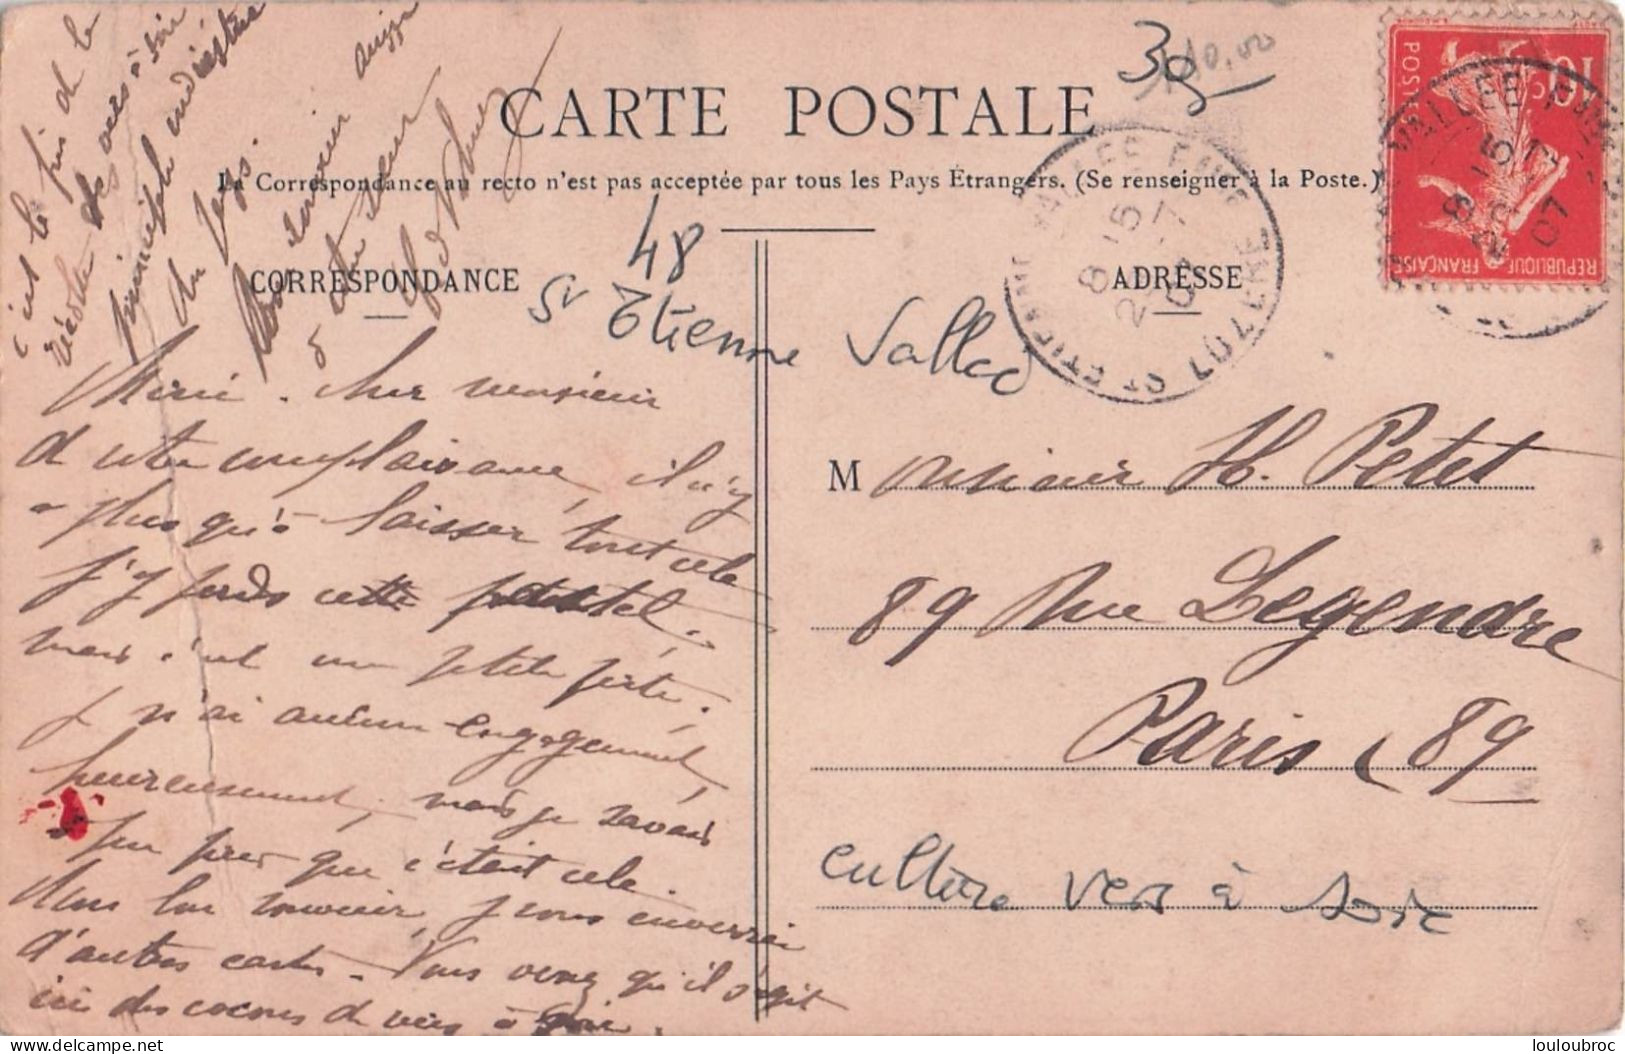 30
110,00
CARTE POSTALE
La Correspondance au recto n'est pas acceptée par tous les Pays Étrangers. (Se renseigner à la Poste.)
CORRESPONDANCE
ADRESSE
48
St Etienne Vallée
Merci, cher monsieur
d votre complaisance, il n'y
a plus qu'à laisser tout cela
j'y perds cette
mais c'est une petite perte.
J n'ai aucun engagement,
heureusement, mais je savais
à peu près que c'était cela.
dans bon souvenir, j vous enverrai
d'autres cartes. Vous voyez qu'il s'agit
ici des cocons d vers à soie.
c'est le pris de la
récolte des vers à soie
principale industrie
du pays.
Bon souvenir aussi
à
Monsieur H. Petet
89 Rue Legendre
Paris, 89
culture vers à soie
VALLEE FSE
8 15
07
ST ETIENNE
LOZERE
10 c
POSTES
REPUBLIQUE FRANÇAISE
VALLEE FSE
8 15
07
louloubroc